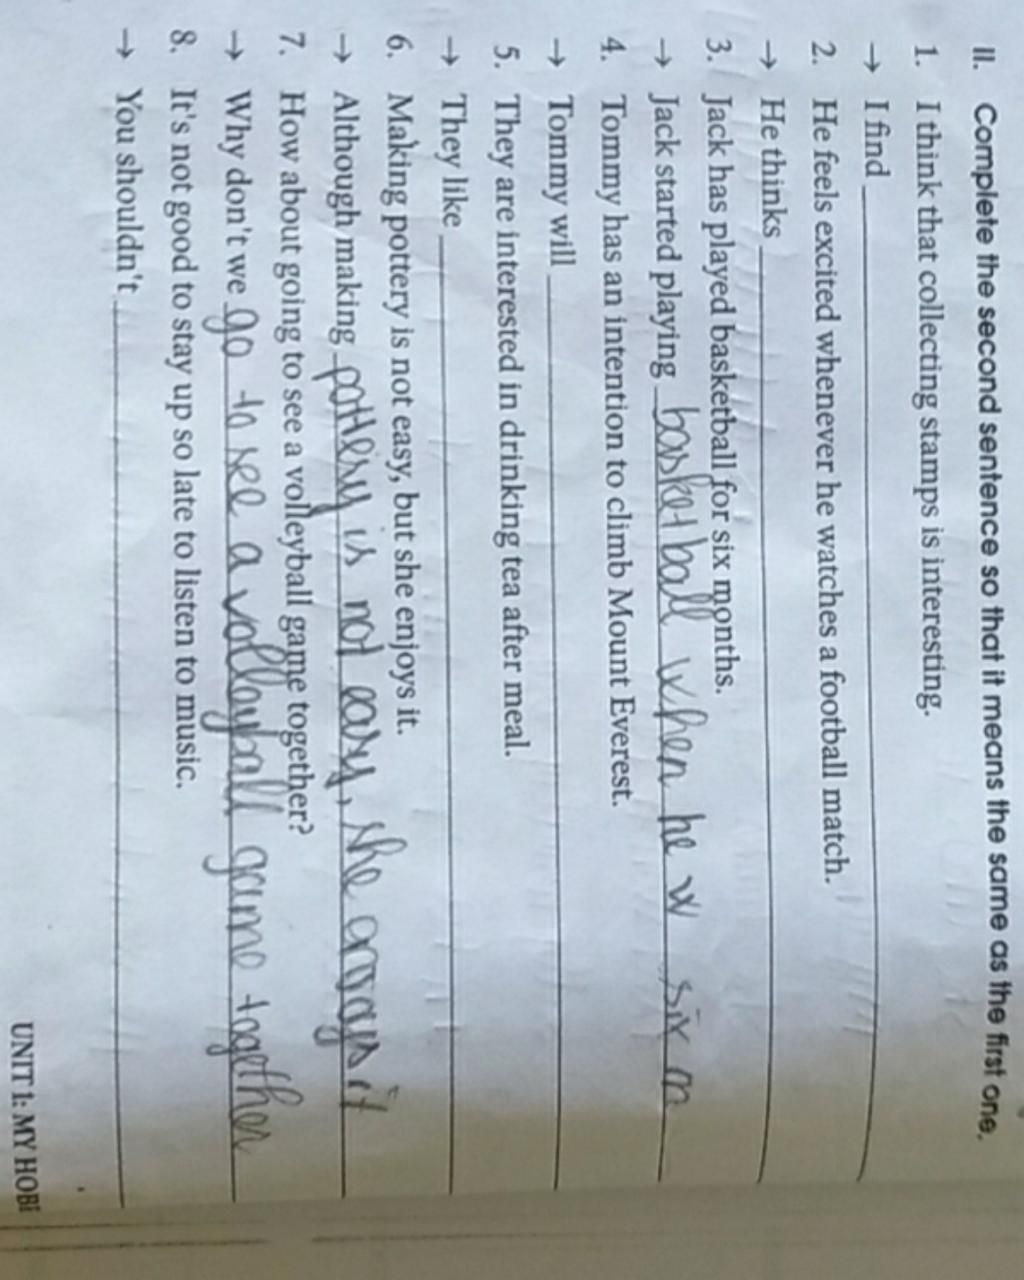 II. Complete the second sentence so that it means the same as the first one.
1. I think that collecting stamps is interesting.
→ I find
2. He feels excited whenever he watches a football match.
→ He thinks
3. Jack has played basketball for six months.
→ Jack started playing basketball when he w six m
4. Tommy has an intention to climb Mount Everest.
→ Tommy will
5. They are interested in drinking tea after meal.
→ They like
6. Making pottery is not easy, but she enjoys it.
→ Although making pottery is not easy, she it
7. How about going to see a volleyball game together?
→ Why don't we go to see a volleyball game together
8. It's not good to stay up so late to listen to music.
→ You shouldn't
UNIT 1: MY HOBI